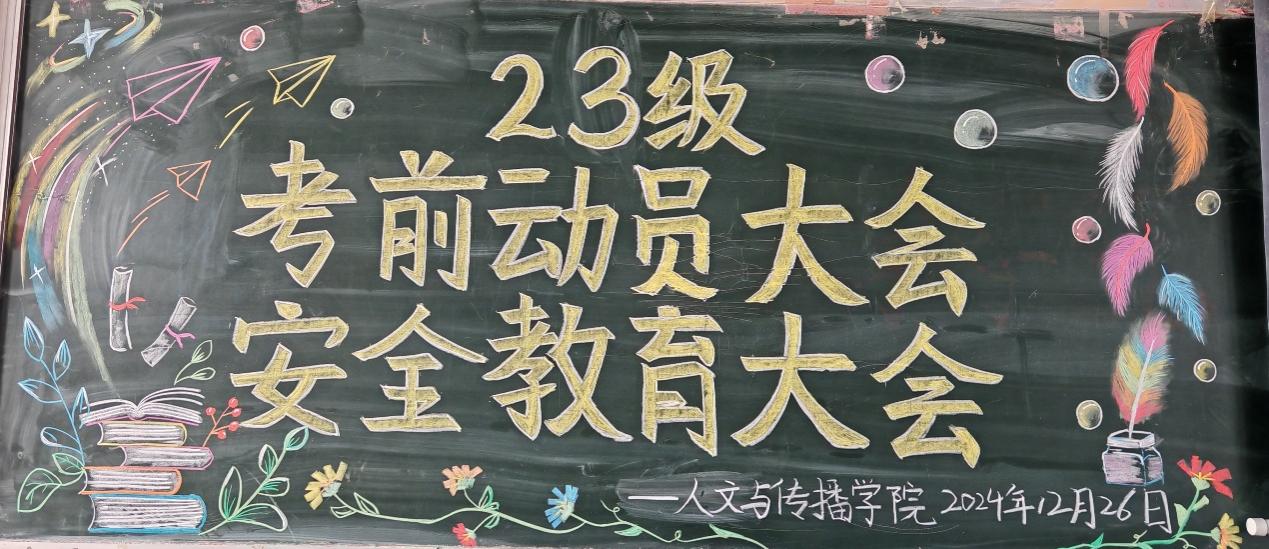 23级
考前动员大会
安全教育大会
——人文与传播学院 2024年12月26日